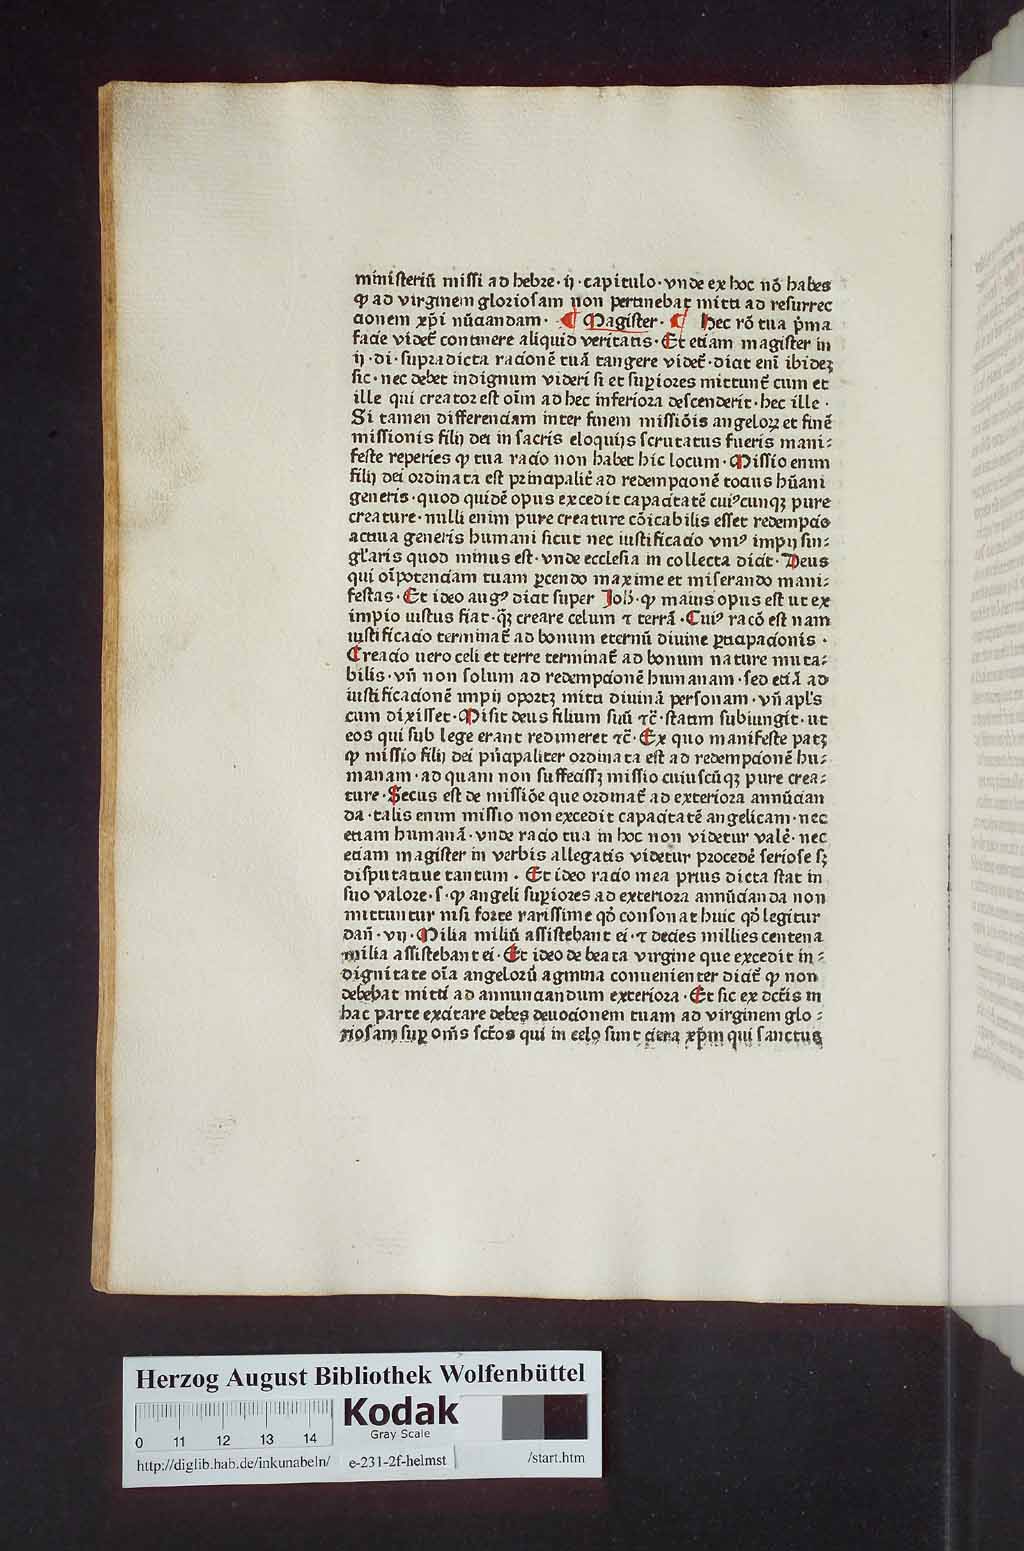 ministeriū missi ad hebre · ij · capitulo · vnde ex hoc nō habes
ꝙ ad virginem gloriosam non pertinebat mitti ad resurrec
cionem xp̄i nūciandam · ¶ Magister · ¶ Hec rō tua p̓ma
facie videt᷑ continere aliquid veritatis · Et etiam magister in
ij · di · supradicta racionē tuā tangere videt᷑ · dicit enī ibidez
sic · nec debet indignum videri si et suꝑiores mittunt᷑ cum et
ille qui creator est oīm ad hec inferiora descenderit · hec ille ·
Si tamen differenciam inter finem missiōis angeloꝝ et finē
missionis filij dei in sacris eloquijs scrutatus fueris mani⸗
feste reperies ꝙ tua racio non habet hic locum · Missio enim
filij dei ordinata est principalit᷑ ad redempcionē tocius hūani
generis · quod quidē opus excedit capacitatē cuiꝰcunqꝫ pure
creature · nulli enim pure creature cōicabilis esset redempcio
actiua generis humani sicut nec iustificacio vniꝰ impij sin⸗
gl̓aris quod minus est · vnde ecclesia in collecta dicit · Deus
qui oīpotenciam tuam ꝑcendo maxime et miserando mani⸗
festas · Et ideo augꝰ dicit super Joh̄ · ꝙ maius opus est ut ex
impio iustus fiat · q̄ꝫ creare celum ⁊ terrā · Cuiꝰ racō est nam
iustificacio terminat᷑ ad bonum eternū diuine ꝑticipacionis ·
Creacio uero celi et terre terminat᷑ ad bonum nature muta⸗
bilis · vn̄ non solum ad redempcionē humanam · sed etiā ad
iustificacionē impij oportꝫ mitti diuinā personam · vn̄ apl̓s
cum dixisset · Misit deus filium suū ⁊c̄ · statim subiungit · ut
eos qui sub lege erant redimeret ⁊c̄ · Ex quo manifeste patꝫ
ꝙ missio filij dei pn̓cipaliter ordinata est ad redempcionē hu⸗
manam · ad quam non suffecissꝫ missio cuiuscūqꝫ pure crea⸗
ture · Secus est de missiōe que ordinat᷑ ad exteriora annūcian
da · talis enim missio non excedit capacitatē angelicam · nec
etiam humanā · vnde racio tua in hoc non videtur valē · nec
etiam magister in verbis allegatis videtur procedē seriose sꝫ
disputatiue tantum · Et ideo racio mea prius dicta stat in
suo valore · s · ꝙ angeli suꝑiores ad exteriora annūcianda non
mittuntur nisi forte rarissime qd̓ consonat huic qd̓ legitur
dan̄ · vij · Milia miliū assistebant ei · ⁊ decies millies centena
milia assistebant ei · Et ideo de beata virgine que excedit in⸗
dignitate oīa angelorū agmina conuenienter dicit᷑ ꝙ non
debebat mitti ad annunciandum exteriora · Et sic ex dictis in
hac parte excitare debes deuocionem tuam ad virginem glo⸗
riosam suꝑ om̄s sct̄os qui in celo sunt citra xp̄m qui sanctus
Herzog August Bibliothek Wolfenbüttel
Kodak
Gray Scale
0 11 12 13 14
http://diglib.hab.de/inkunabeln/ e-231-2f-helmst /start.htm